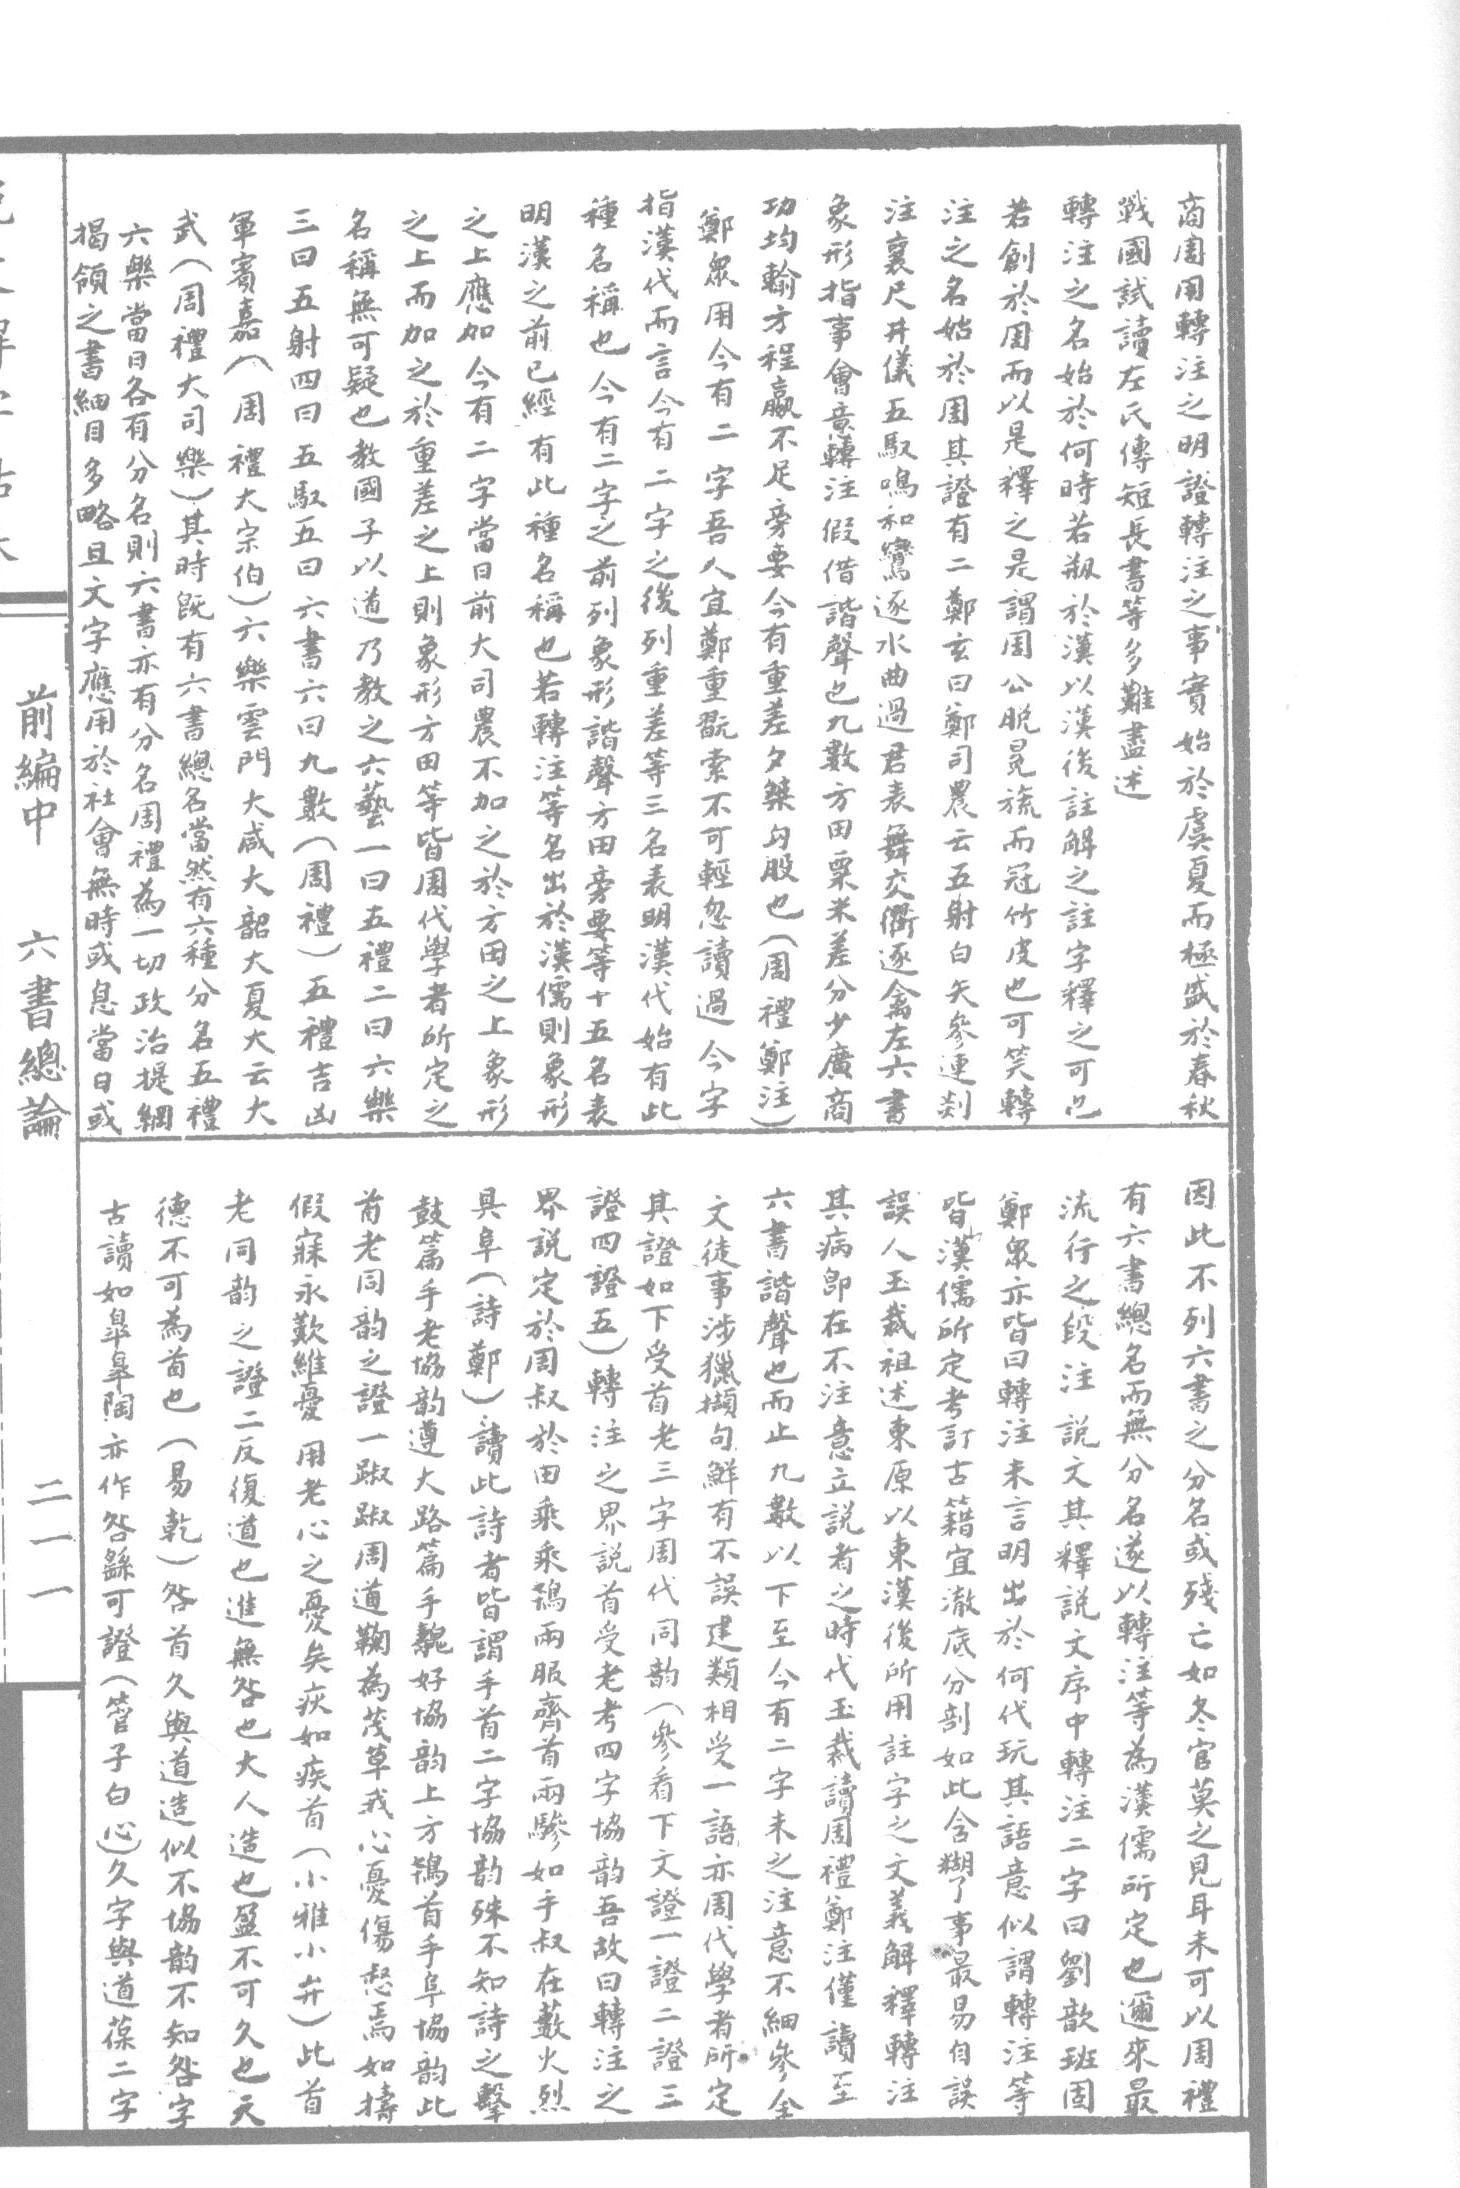 商周用轉注之明證轉注之事實始於虞夏而極盛於春秋
戰國試讀左氏傳短長書等多難盡述
轉注之名始於何時若刱於漢以漢後註解之註字釋之可也
若創於周而以是釋之是謂周公脫冕旒而冠竹皮也可笑轉
注之名始於周其證有二鄭玄曰鄭司農云五射白矢參連剡
注襄尺井儀五馭鳴和鸞逐水曲過君表舞交衢逐禽左六書
象形指事會意轉注假借諧聲也九數方田粟米差分少廣商
功均輸方程贏不足旁要今有重差夕桀句股也(周禮鄭注)
鄭眾用今有二字吾人宜鄭重翫索不可輕忽讀過今字
指漢代而言今有二字之後列重差等三名表明漢代始有此
種名稱也今有二字之前列象形諧聲方田旁要等十五名表
明漢之前已經有此種名稱也若轉注等名出於漢儒則象形
之上應加今有二字當日前大司農不加之於方田之上象形
之上而加之於重差之上則象形方田等皆周代學者所定之
名稱無可疑也教國子以道乃教之六藝一曰五禮二曰六樂
三曰五射四曰五馭五曰六書六曰九數(周禮)五禮吉凶
軍賓嘉(周禮大宗伯)六樂雲門大咸大韶大夏大云大
武(周禮大司樂)其時既有六書總名當然有六種分名五禮
六樂當日各有分名則六書亦有分名周禮為一切政治提綱
揭領之書細目多略且文字應用於社會無時或息當日或
因此不列六書之分名或殘亡如冬官莫之見耳未可以周禮
有六書總名而無分名遂以轉注等為漢儒所定也邇來最
流行之段注說文其釋說文序中轉注二字曰劉歆班固
鄭眾亦皆曰轉注未言明出於何代玩其語意似謂轉注等
皆漢儒所定考訂古籍宜澈底分剖如此含糊了事最易自誤
誤人玉裁祖述東原以東漢後所用註字之文義解釋轉注
其病卽在不注意立說者之時代玉裁讀周禮鄭注僅讀至
六書諧聲也而止九數以下至今有二字未之注意不細參全
文徒事涉獵擷句鮮有不誤建類相受一語亦周代學者所定
其證如下受首老三字周代同韵(參看下文證一證二證三
證四證五)轉注之界說首受老考四字協韵吾故曰轉注之
界說定於周叔於田乘乘鴇兩服齊首兩驂如手叔在藪火烈
具阜(詩鄭)讀此詩者皆謂手首二字協韵殊不知詩之擊
鼓篇手老協韵遵大路篇手魗好協韵上方鴇首手阜協韵此
首老同韵之證一踧踧周道鞫為茂草我心憂傷惄焉如擣
假寐永歎維憂用老心之憂矣疢如疾首(小雅小弁)此首
老同韵之證二反復道也進無咎也大人造也盈不可久也天
德不可為首也(易乾)咎首久與道造似不協韵不知咎字
古讀如皋皋陶亦作咎繇可證(管子白心)久字與道葆二字
前編中
六書總論
二一一